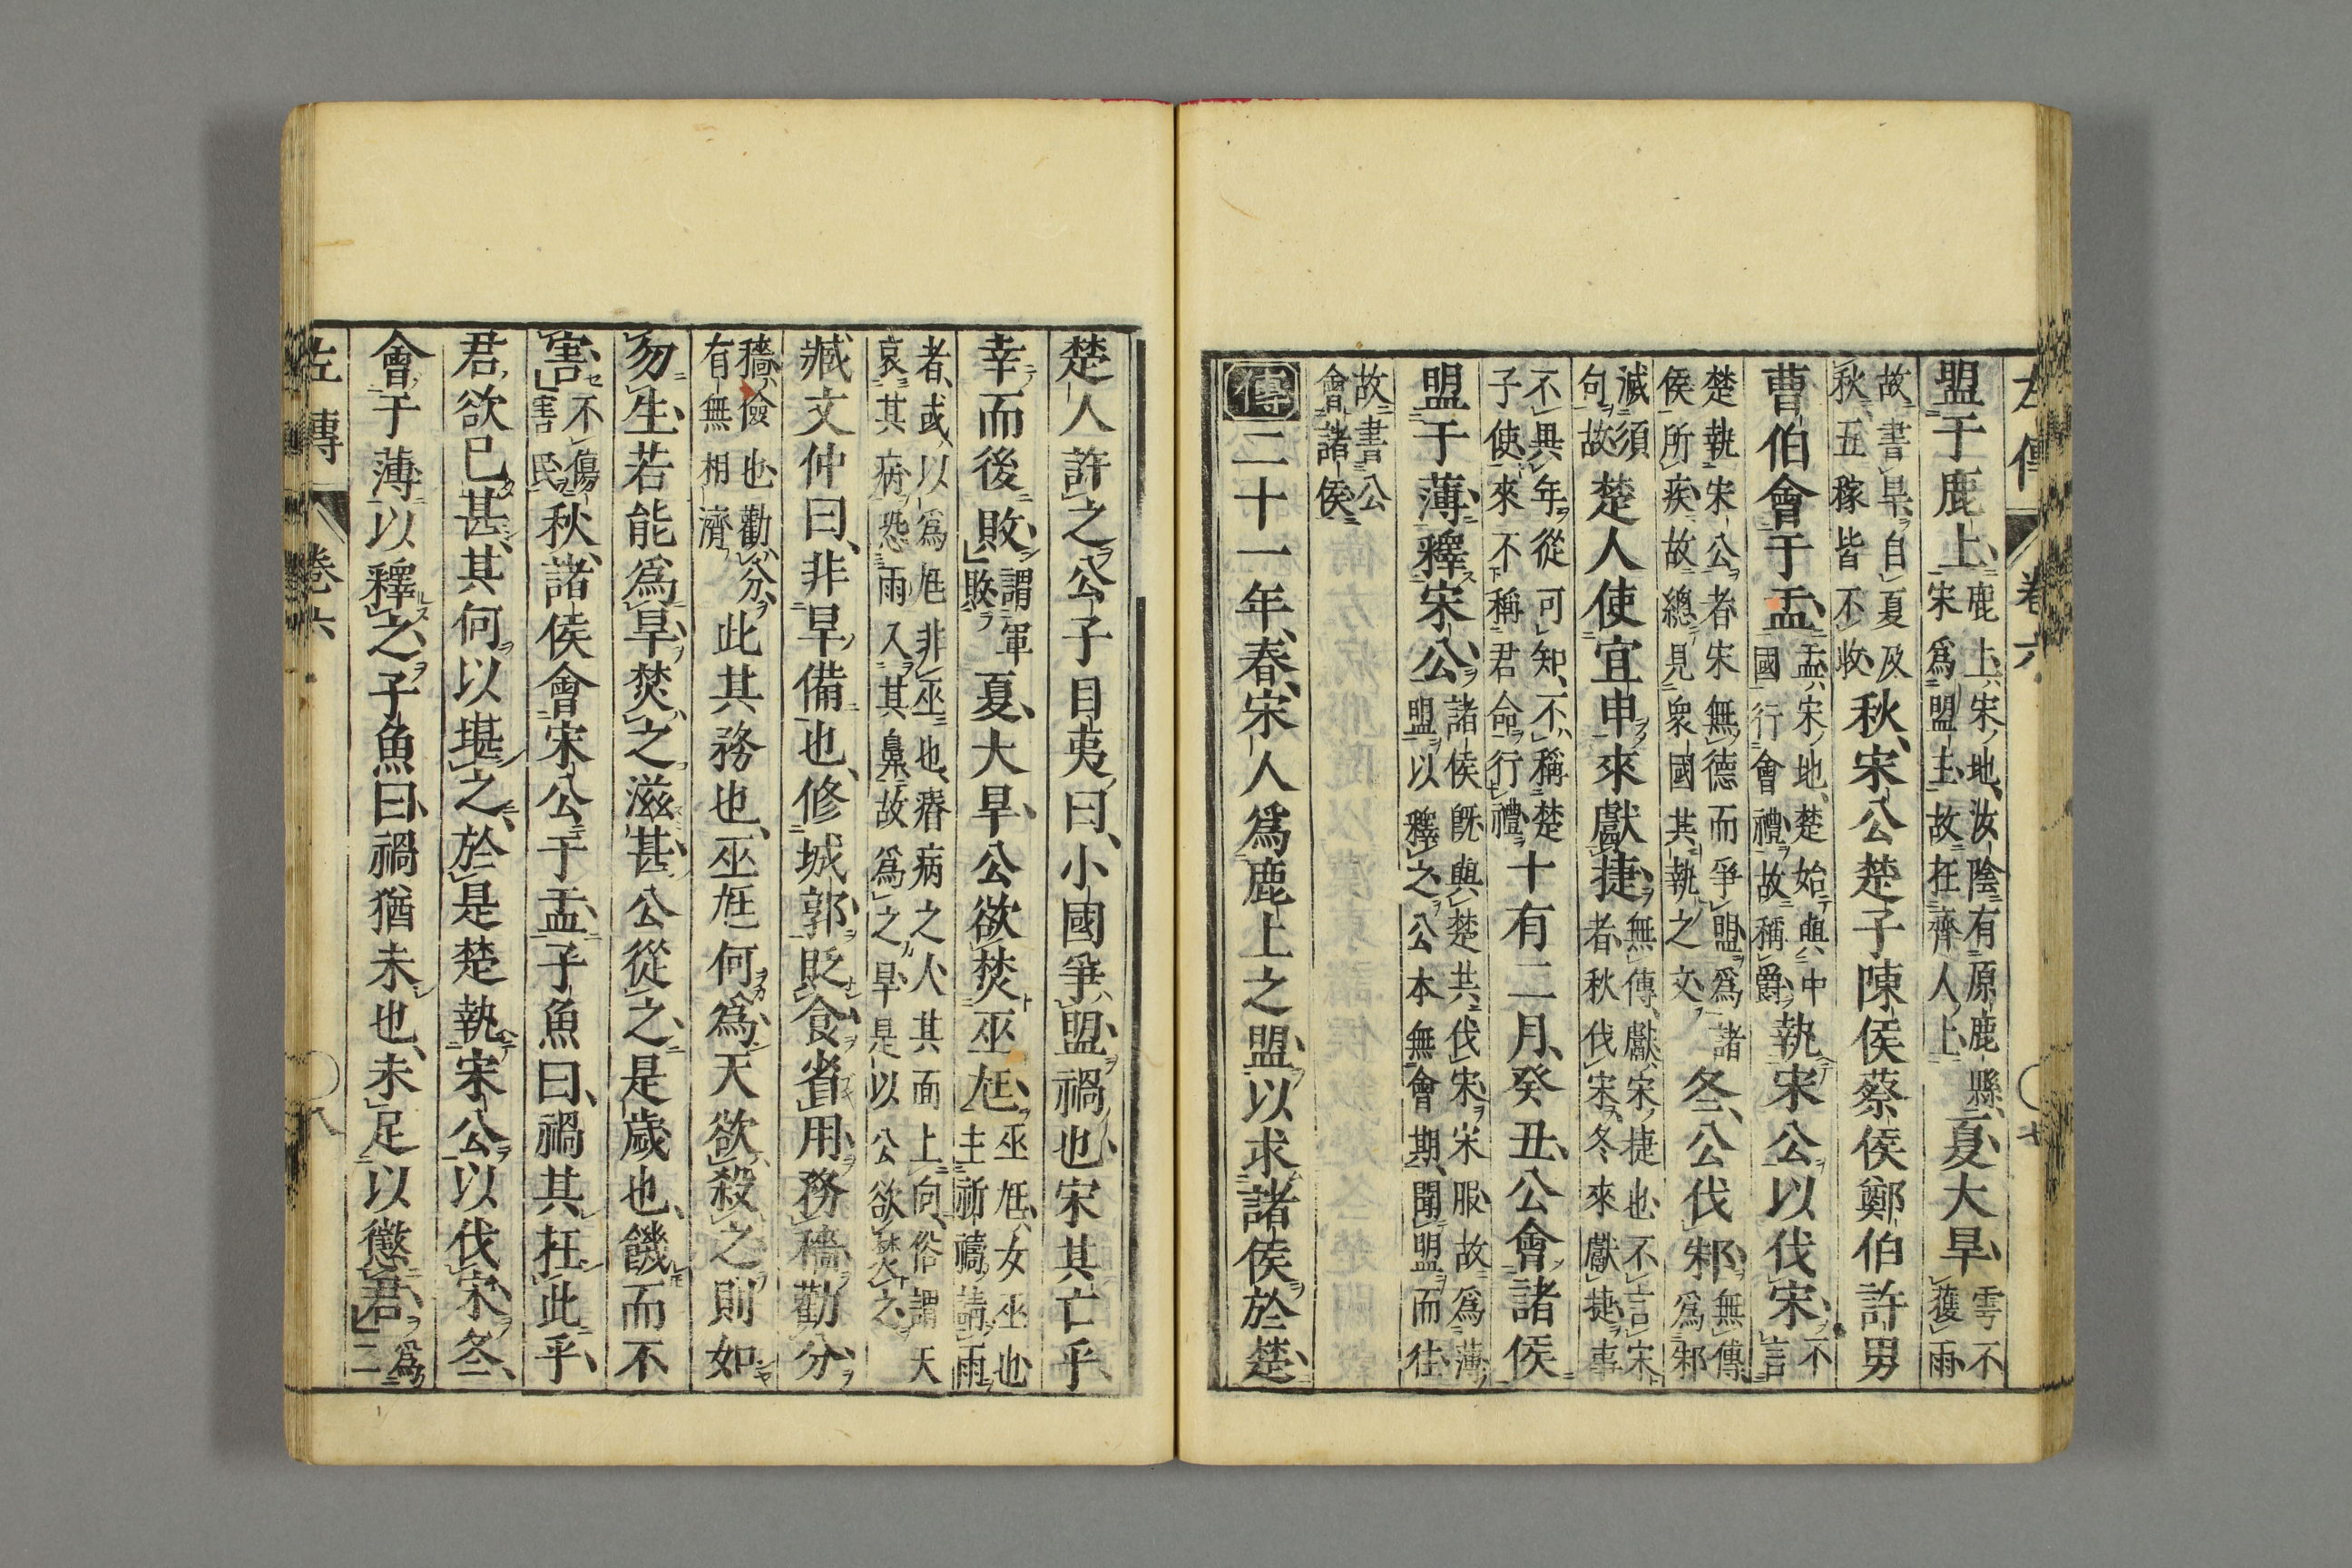 左傳 卷六 七
盟于鹿上鹿上宋地汝陰有原鹿縣宋爲盟主故在齊人上夏大旱雩不獲雨
故書旱自夏及秋五稼皆不收秋、宋公楚子陳侯蔡侯鄭伯許男
曹伯會于盂盂宋地楚始與中國行會禮故稱爵執宋公以伐宋不言
楚執宋公者宋無德而爭盟爲諸侯所疾故總見衆國共執之文冬、公伐邾無傳爲邾
滅須句故楚人使宜申來獻捷無傳獻宋捷也不言宋者秋伐宋冬來獻捷事
不異年從可知不稱楚子使來不稱君命行禮十有二月、癸丑、公會諸侯
盟于薄、釋宋公諸侯既與楚共伐宋宋服故爲薄盟以釋之公本無會期聞盟而往
故書公會諸侯
傳二十一年、春、宋人爲鹿上之盟、以求諸侯於楚、
楚人許之、公子目夷曰、小國爭盟、禍也、宋其亡乎、
幸而後敗、謂軍敗夏、大旱、公欲焚巫尫、巫尫女巫也主祈禱請雨
者、或以爲尫非巫也、瘠病之人其面上向、俗謂天哀其病恐雨入其鼻故爲之旱是以公欲焚之
臧文仲曰、非旱備也、修城郭、貶食、省用、務穡、勸分、
穡儉也勸分有無相濟此其務也、巫尫何爲、天欲殺之則如
勿生、若能爲旱、焚之滋甚、公從之、是歲也、饑而不
害、不傷害民秋、諸侯會宋公于盂、子魚曰、禍其在此乎、
君欲已甚、其何以堪之、於是楚執宋公以伐宋、冬、
會于薄以釋之、子魚曰、禍猶未也、未足以懲君爲二
左傳 卷六 八